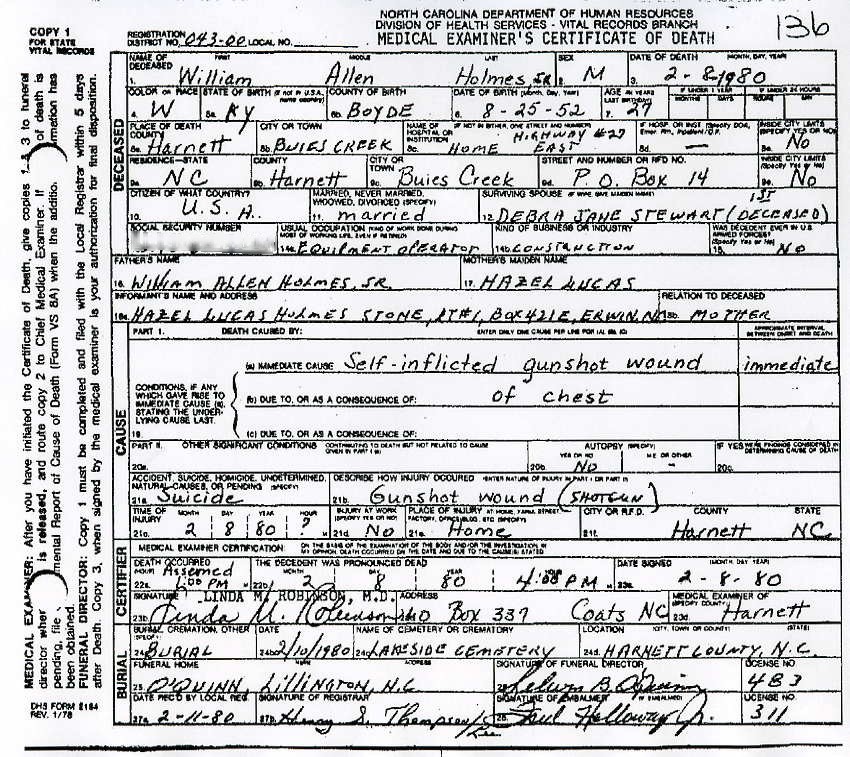 COPY 1
FOR STATE
VITAL RECORDS
NORTH CAROLINA DEPARTMENT OF HUMAN RESOURCES
DIVISION OF HEALTH SERVICES - VITAL RECORDS BRANCH
MEDICAL EXAMINER'S CERTIFICATE OF DEATH
136
REGISTRATION DISTRICT NO. 043-00 LOCAL NO.
NAME OF DECEASED FIRST MIDDLE LAST SEX DATE OF DEATH (MONTH, DAY, YEAR)
1. William Allen Holmes JR 2. M 3. 2-8-1980
COLOR OR RACE STATE OF BIRTH (If not in U.S.A. name country) COUNTY OF BIRTH DATE OF BIRTH (Month, Day, Year) AGE IN YEARS LAST BIRTHDAY IF UNDER 1 YEAR MONTHS DAYS IF UNDER 24 HOURS HOURS MIN
4. W 5a. KY 5b. BOYDE 6. 8-25-52 7. 27
PLACE OF DEATH COUNTY CITY OR TOWN NAME OF HOSPITAL OR INSTITUTION (IF NOT IN EITHER, GIVE STREET AND NUMBER) IF HOSP. OR INST. (Specify DOA, Emer. Rm., Inpatient/O.P.) INSIDE CITY LIMITS (SPECIFY YES OR NO)
8a. Harnett 8b. BUIES CREEK 8c. HOME HIGHWAY #27 EAST 8d. — 8e. No
RESIDENCE-STATE COUNTY CITY OR TOWN STREET AND NUMBER OR RFD NO. INSIDE CITY LIMITS (Specify Yes or No)
9a. NC 9b. Harnett 9c. Buies Creek 9d. P.O. Box 14 9e. No
CITIZEN OF WHAT COUNTRY? MARRIED, NEVER MARRIED, WIDOWED, DIVORCED (SPECIFY) SURVIVING SPOUSE (IF WIFE GIVE MAIDEN NAME) 1ST
10. U.S.A. 11. married 12. DEBRA JANE STEWART (DECEASED)
SOCIAL SECURITY NUMBER USUAL OCCUPATION (KIND OF WORK DONE DURING MOST OF WORKING LIFE, EVEN IF RETIRED) KIND OF BUSINESS OR INDUSTRY WAS DECEDENT EVER IN U.S. ARMED FORCES? (Specify Yes or No)
14a. EQUIPMENT OPERATOR 14b. CONSTRUCTION 15. No
FATHER'S NAME MOTHER'S MAIDEN NAME
16. WILLIAM ALLEN HOLMES, SR. 17. HAZEL LUCAS
INFORMANT'S NAME AND ADDRESS RELATION TO DECEASED
18a. HAZEL LUCAS HOLMES STONE, RT#1, BOX 421E, ERWIN, NC 18b. MOTHER
PART 1. DEATH CAUSED BY: ENTER ONLY ONE CAUSE PER LINE FOR (a), (b), (c) APPROXIMATE INTERVAL BETWEEN ONSET AND DEATH
(a) IMMEDIATE CAUSE Self-inflicted gunshot wound immediate
CONDITIONS, IF ANY WHICH GAVE RISE TO IMMEDIATE CAUSE (a), STATING THE UNDERLYING CAUSE LAST.
(b) DUE TO, OR AS A CONSEQUENCE OF: of chest
19 (c) DUE TO, OR AS A CONSEQUENCE OF:
PART II. OTHER SIGNIFICANT CONDITIONS CONTRIBUTING TO DEATH BUT NOT RELATED TO CAUSE GIVEN IN PART I (a) AUTOPSY (SPECIFY) YES OR NO M.E. OR OTHER IF YES WERE FINDINGS CONSIDERED IN DETERMINING CAUSE OF DEATH
20a. 20b. No 20c.
ACCIDENT, SUICIDE, HOMICIDE, UNDETERMINED, NATURAL CAUSES, OR PENDING (SPECIFY) DESCRIBE HOW INJURY OCCURED (ENTER NATURE OF INJURY IN PART I OR PART II)
21a. Suicide 21b. Gunshot wound (SHOTGUN)
TIME OF INJURY MONTH DAY YEAR HOUR INJURY AT WORK (SPECIFY YES OR NO) PLACE OF INJURY AT HOME, FARM, STREET, FACTORY, OFFICE BLDG. ETC (SPECIFY) CITY OR R.F.D. COUNTY STATE
21c. 2 8 80 ? 21d. No 21e. Home 21f. Harnett NC
MEDICAL EXAMINER CERTIFICATION: ON THE BASIS OF THE EXAMINATION OF THE BODY AND/OR THE INVESTIGATION IN MY OPINION, DEATH OCCURRED ON THE DATE AND DUE TO THE CAUSE(S) STATED
DEATH OCCURRED THE DECEDENT WAS PRONOUNCED DEAD DATE SIGNED (MONTH, DAY, YEAR)
HOUR Assumed MONTH DAY YEAR HOUR
22a. 1:00 PM 22b. 2 8 80 4:00 PM 23a. 2-8-80
SIGNATURE LINDA M. ROBINSON, M.D. ADDRESS MEDICAL EXAMINER OF (SPECIFY COUNTY)
23b. Linda M. Robinson MD Box 337 Coats NC 23d. Harnett
BURIAL, CREMATION, OTHER (SPECIFY) DATE NAME OF CEMETERY OR CREMATORY LOCATION (CITY, TOWN OR COUNTY) (STATE)
24a. BURIAL 24b. 2/10/1980 24c. LAKESIDE CEMETERY 24d. HARNETT COUNTY, N.C.
FUNERAL HOME NAME ADDRESS SIGNATURE OF FUNERAL DIRECTOR LICENSE NO
25. O'QUINN, LILLINGTON, N.C. 483
DATE REC'D BY LOCAL REG. SIGNATURE OF REGISTRAR SIGNATURE OF EMBALMER (IF EMBALMED) LICENSE NO
27a. 2-11-80 27b. Henry S. Thompson/Lee Paul Holloway Jr. 311
DECEASED
CAUSE
CERTIFIER
BURIAL
MEDICAL EXAMINER: After you have initiated the Certificate of Death, give copies 1 & 3 to funeral
director when is released, and route copy 2 to Chief Medical Examiner. If of death is
pending, file mental Report of Cause of Death (Form VS 8A) when the additio. rmation has
been obtained.
FUNERAL DIRECTOR: Copy 1 must be completed and filed with the Local Registrar within 5 days
after Death. Copy 3, when signed by the medical examiner is your authorization for final disposition.
DHS FORM 2164
REV. 1/78